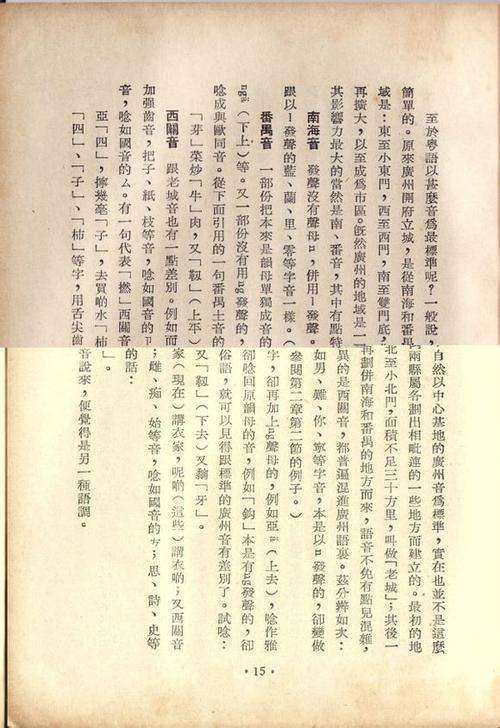 至於粵語以甚麼音爲最標準呢?一般說,自然以中心基地的廣州音爲標準,實在也並不是這麼
簡單的。原來廣州開府立城,是從南海和番禺兩縣屬各劃出相毗連的一些地方而建立的。最初的地
域是:東至小東門,西至西門,南至雙門底,北至小北門,面積不足三十方里,叫做「老城」;其後一
再擴大,以至成爲市區。旣然廣州的地域是一再劃併南海和番禺的地方而來,語音不免有點兒混雜,
其影響力最大的當然是南、番音,其中有點特異的是西關音,都普遍混進廣州語裏。茲分辨如次:
南海音 發聲沒有聲母n,併用l發聲。如男、難、你、寧等字音,本是以n發聲的,卻變做
跟以l發聲的藍、蘭、里、零等字音一樣。(參閱第二章第二節的例子。)
番禺音 一部份把本來是韻母單獨成音的字,卻再加上ng聲母的,例如亞ä(上去),唸作雅
ngä(下上)等。又一部份沒有用ng發聲的,卻唸回原韻母的音,例如「鈎」本是有ng發聲的,卻
唸成與歐同音。從下面引用的一句番禺土音的俗語,就可以見得跟標準的廣州音有差別了。試唸:
「芽」菜炒「牛」肉,又「靱」(上平)又「靱」(下去)又黐「牙」。
西關音 跟老城音也有一點差別。例如而家(現在)講衣家,呢啲(這些)講衣啲;又西關音
加强齒音,把子、紙、枝等音,唸如國音的ㄗ;雌、痴、始等音,唸如國音的ㄘ;思、詩、史等
音,唸如國音的ㄙ。有一句代表「撚」西關音的話:
亞「四」,擰幾毫「子」,去買啲水「柿」。
「四」、「子」、「柿」等字,用舌尖齒音說來,便覺得是另一種語調。
·15·